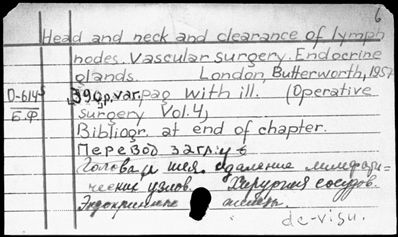 6
Head and neck and clearance of lymph
nodes. Vascular surgery. Endocrine
glands. London, Butterworth, 1957
О-614 390p. var. pag with ill. (Operative
Б.Ф surgery Vol. 4)
Bibliogr. at end of chapter.
Перевод загл.:
Голова и шея. Удаление лимфати=
ческих узлов. Хирургия сосудов.
Эндокринные
de-visu.